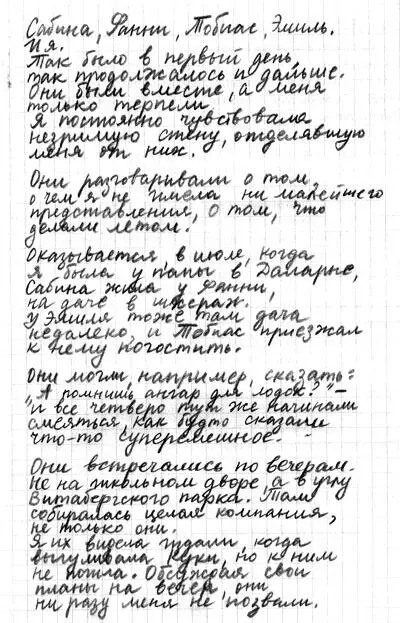 Сабина, Фанни, Тобиас, Эмиль.
И я.
Так было в первый день,
так продолжалось и дальше.
Они были вместе, а меня
только терпели.
Я постоянно чувствовала
незримую стену, отделявшую
меня от них.
Они разговаривали о том,
о чем я не имела ни малейшего
представления, о том, что
делали летом.
Оказывается, в июле, когда
я была у папы в Даларне,
Сабина жила у Фанни,
на даче в шхерах.
У Эмиля тоже там дача
недалеко, и Тобиас приезжал
к нему погостить.
Они могли, например, сказать:
„А помнишь ангар для лодок?" –
и все четверо тут же начинали
смеяться, как будто сказали
что-то суперсмешное.
Они встречались по вечерам.
Не на школьном дворе, а в углу
Витабергского парка. Там
собиралась целая компания,
не только они.
Я их видела издали, когда
выгуливала Куки, но к ним
не пошла. Обсуждая свои
планы на вечер, они
ни разу меня не позвали.